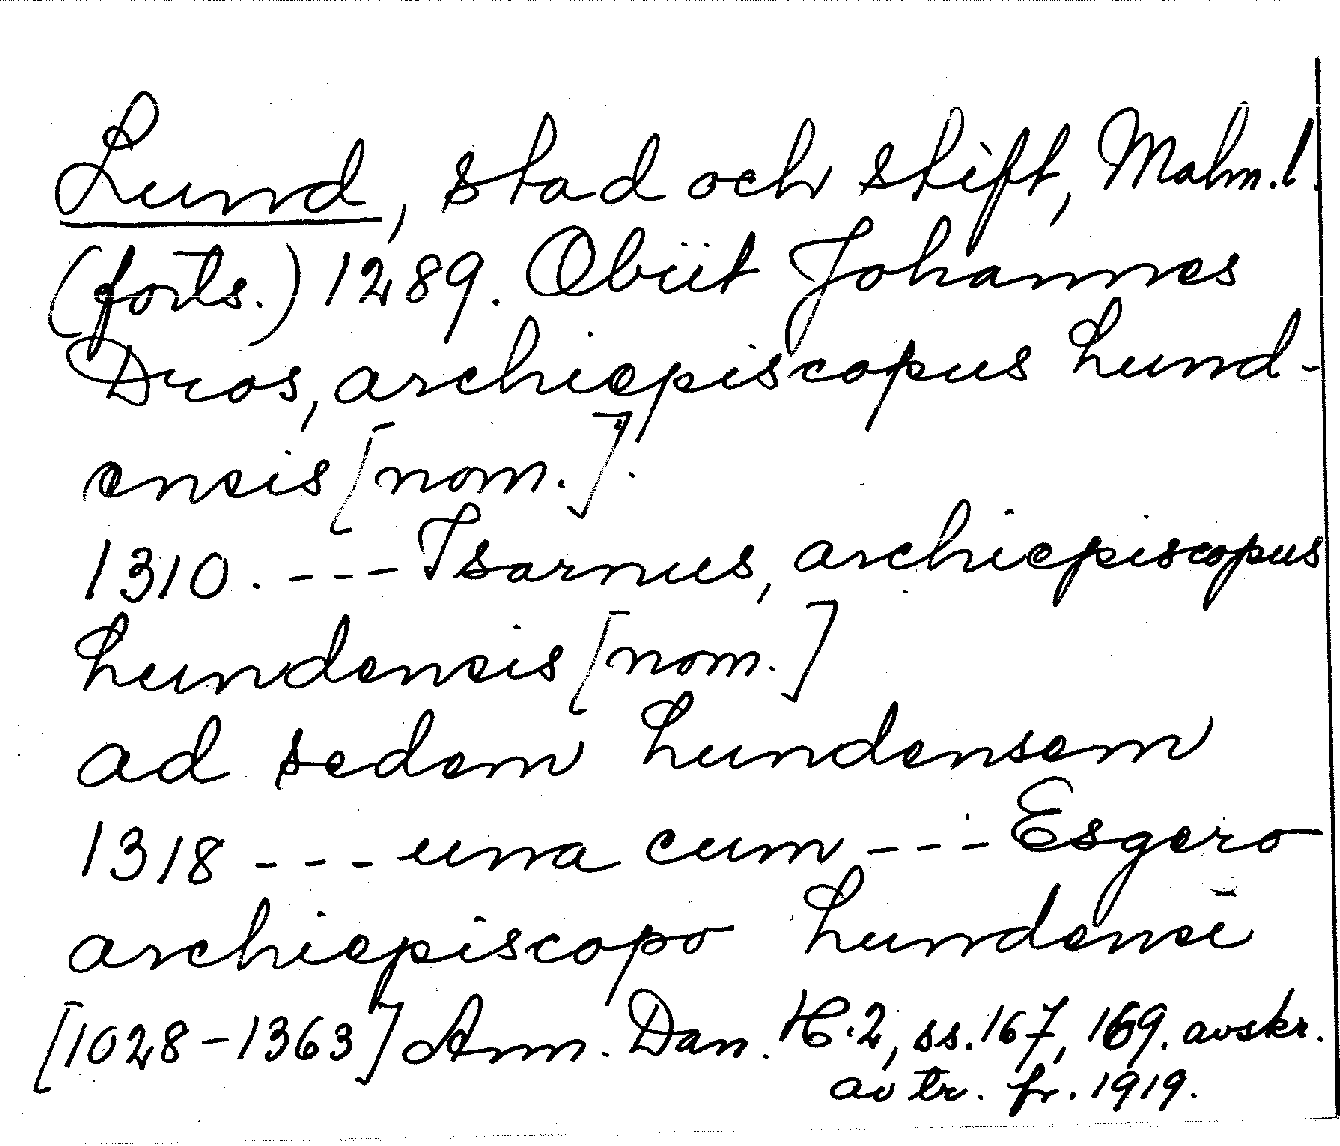 Lund, stad och stift, Malm.l.
(forts.) 1289. Obiit Johannes
Dros, archiepiscopus Lund-
ensis [nom.].
1310. --- Isarnus, archiepiscopus
Lundensis [nom.]
ad sedem Lundensem
1318 --- una cum --- Esgero
archiepiscopo Lundensi
[1028-1363] Ann. Dan. H.2, ss. 167, 169. avskr.
av tr. fr. 1919.